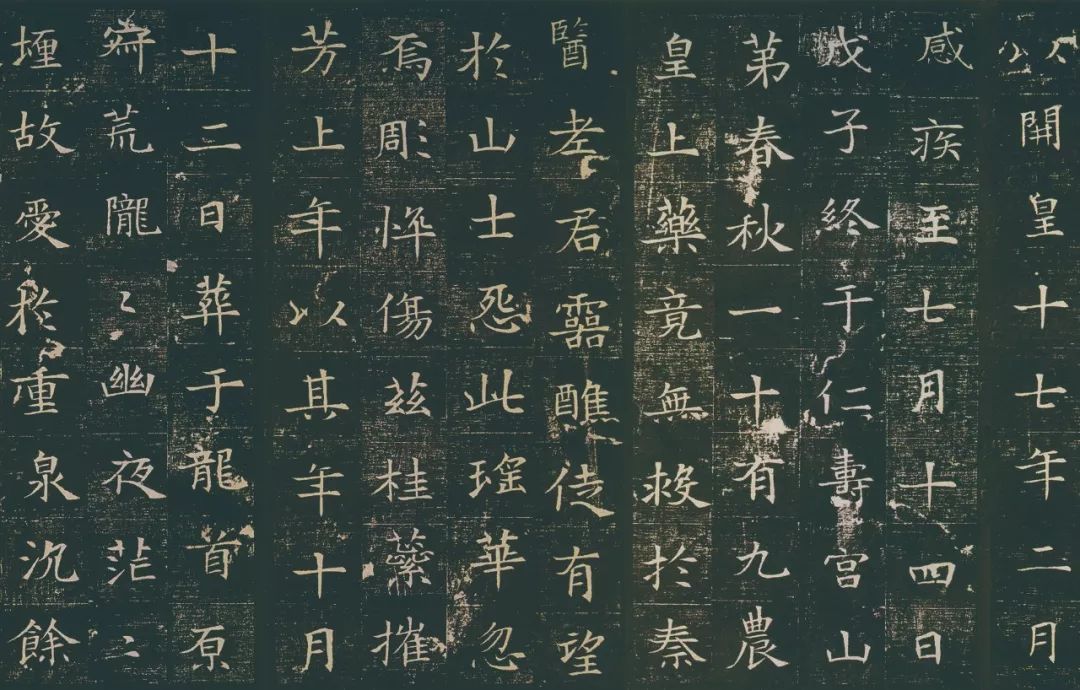 以開皇十七年二月
感疾至七月十四日
戊子終于仁壽宮山
第春秋一十有九農
皇上藥竟無救於秦
醫老君靈醮徒有望
於山士怨此瑤華忽
焉彫悴傷茲桂蘂摧
芳上年以其年十月
十二日葬于龍首原
齊荒隴〻幽夜茫〻
堙故愛於重泉沉餘